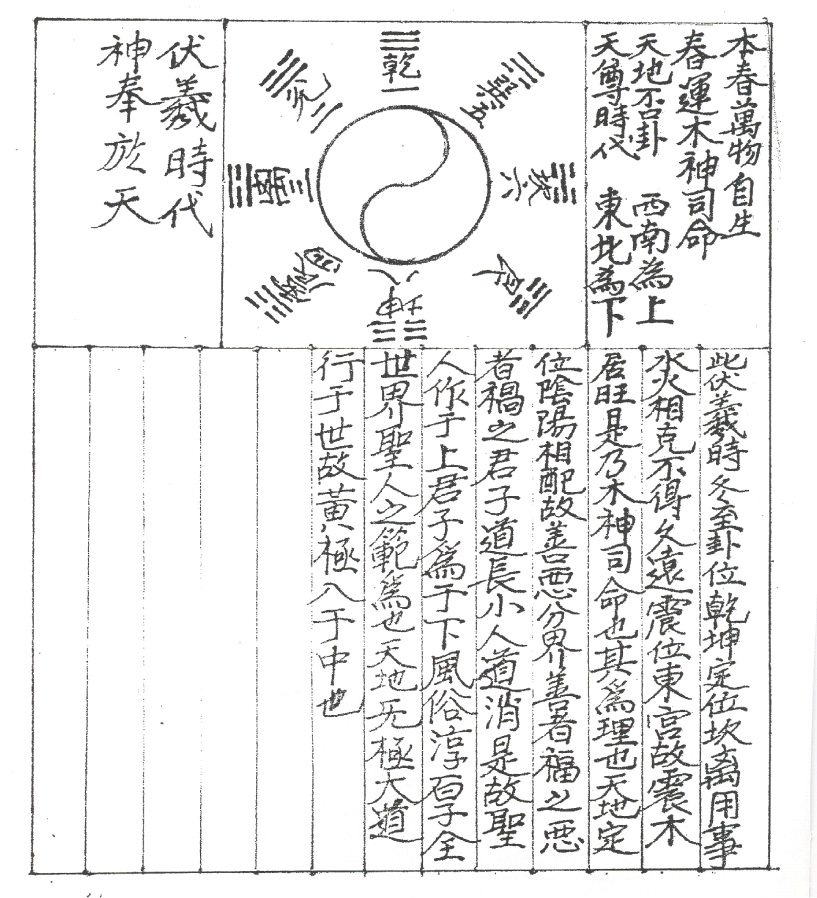 本春萬物自生
春運木神司命
天地否卦 西南為上
天尊時代 東北為下
乾一
兌二
離三
震四
巽五
坎六
艮七
坤八
伏羲時代
神奉於天
此伏羲時冬至卦位乾坤定位坎离用事
水火相克不得久遠震位東宮故震木
居旺是乃木神司命也其為理也天地定
位陰陽相配故善悪分界善者福之悪
者禍之君子道長小人道消是故聖
人作于上君子為于下風俗淳百子全
世界聖人之範為也天地无極大道
行于世故黃極入于中也